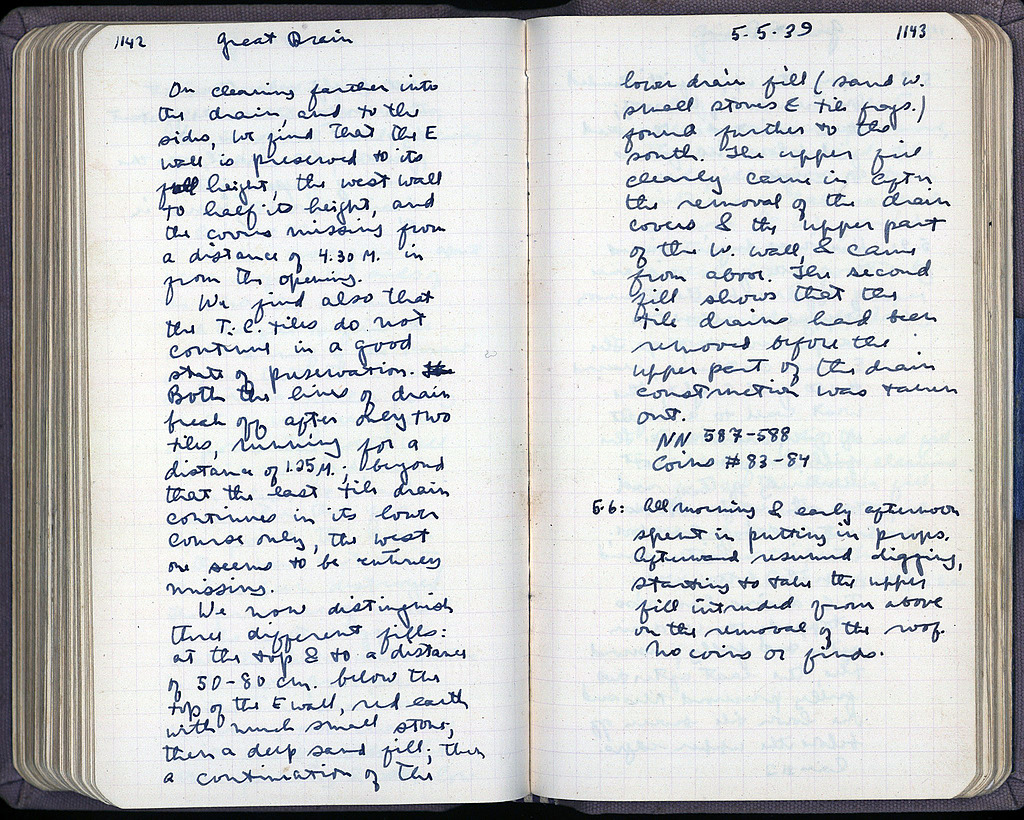 1142
Great Drain
On clearing farther into
the drain, and to the
sides, we find that the E
wall is preserved to its
full height, the west wall
to half its height, and
the covers missing from
a distance of 4.30 M. in
from the opening.
We find also that
the T.C. tiles do not
continue in a good
state of preservation.
Both the lines of drain
break off after only two
tiles, running for a
distance of 1.25 M.; beyond
that the east tile drain
continues in its lower
course only, the west
one seems to be entirely
missing.
We now distinguish
three different fills:
at the top & to a distance
of 50-80 cm. below the
top of the E wall, red earth
with much small stone,
then a deep sand fill; then
a continuation of the
5-5-39
1143
lower drain fill (sand w.
small stones & tile frags.)
found further to the
south. The upper fill
clearly came in after
the removal of the drain
covers & the upper part
of the W. wall, & came
from above. The second
fill shows that the
tile drains had been
removed before the
upper part of the drain
construction was taken
out.
NN 587-588
Coins #83-84
5-6: All morning & early afternoon
spent in putting in props.
Afterward resumed digging,
starting to take the upper
fill intruded from above
on the removal of the roof.
No coins or finds.